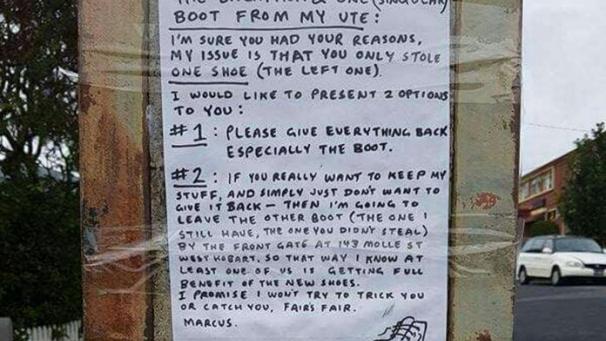 BOOT FROM MY UTE:
I'M SURE YOU HAD YOUR REASONS,
MY ISSUE IS THAT YOU ONLY STOLE
ONE SHOE (THE LEFT ONE).
I WOULD LIKE TO PRESENT 2 OPTIONS
TO YOU:
#1: PLEASE GIVE EVERYTHING BACK
ESPECIALLY THE BOOT.
#2: IF YOU REALLY WANT TO KEEP MY
STUFF, AND SIMPLY JUST DON'T WANT TO
GIVE IT BACK - THEN I'M GOING TO
LEAVE THE OTHER BOOT (THE ONE I
STILL HAVE, THE ONE YOU DIDN'T STEAL)
BY THE FRONT GATE AT 143 MOLLE ST
WEST HOBART. SO THAT WAY I KNOW AT
LEAST ONE OF US IS GETTING FULL
BENEFIT OF THE NEW SHOES.
I PROMISE I WON'T TRY TO TRICK YOU
OR CATCH YOU, FAIR'S FAIR.
MARCUS.